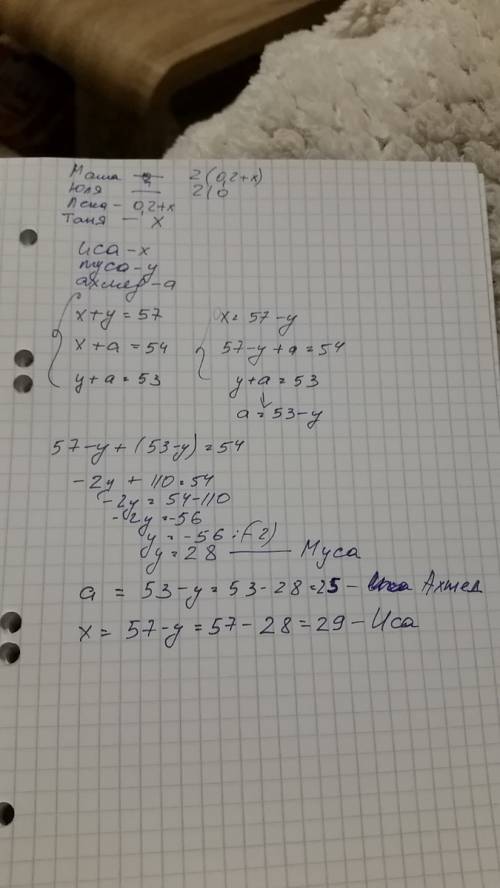 Маша — 2(0,2+x)
Юля — 2(0
Лена - 0,2+x
Таня — x
иса - x
муса - y
ахмед - a
x+y = 57
x+a = 54
y+a = 53
x = 57-y
57-y+a = 54
y+a = 53
↓
a = 53-y
57-y+(53-y) = 54
-2y + 110 = 54
-2y = 54-110
-2y = -56
y = -56:(-2)
y = 28 —— Муса
a = 53-y = 53-28 = 25 - Ахмед
x = 57-y = 57-28 = 29 - Иса